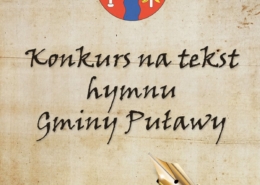 Konkurs na tekst
hymnu
Gminy Puławy